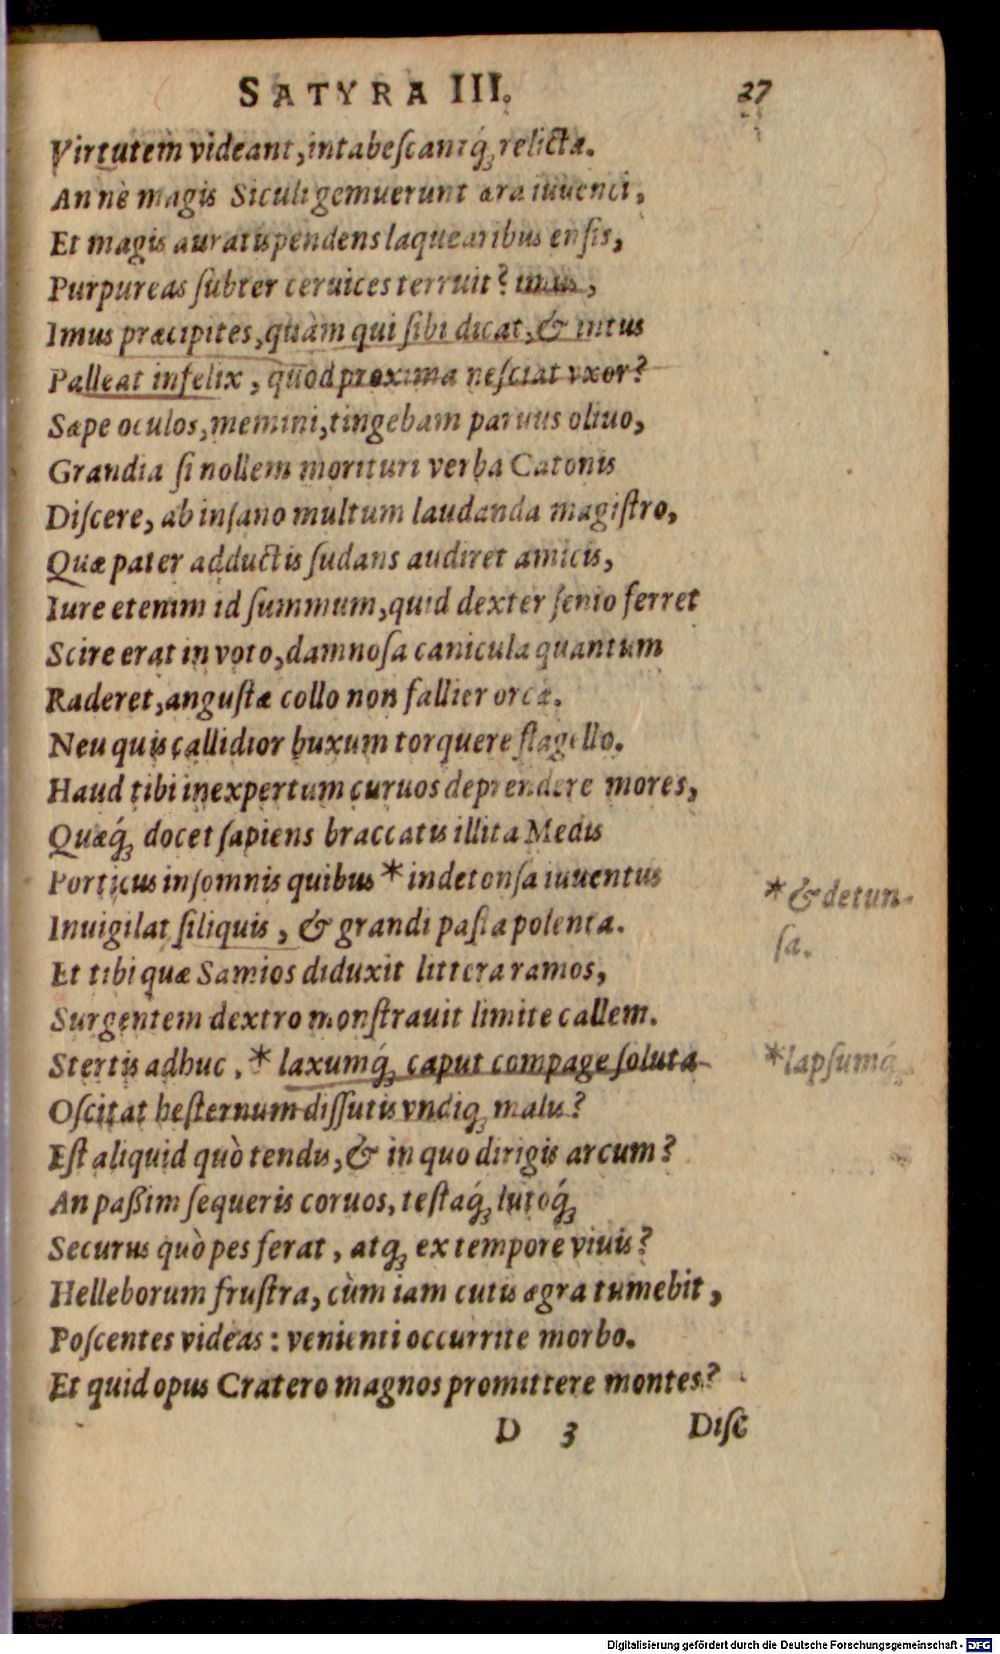 SATYRA III. 27
Virtutem videant, intabescantq́; relictæ.
An nè magis Siculi gemuerunt æra iuuenci,
Et magis auratis pendens laquearibus ensis,
Purpureas subter ceruices terruit? imus,
Imus præcipites, quàm qui sibi dicat, & intus
Palleat infelix, quod proxima nesciat vxor?
Sæpe oculos, memini, tingebam paruus oliuo,
Grandia si nollem morituri verba Catonis
Discere, ab insano multum laudanda magistro,
Quæ pater adductis sudans audiret amicis,
Iure etenim id summum, quid dexter senio ferret
Scire erat in voto, damnosa canicula quantum
Raderet, angustæ collo non fallier orcæ.
Neu quis callidior buxum torquere flagello.
Haud tibi inexpertum curuos deprendere mores,
Quæq́; docet sapiens braccatis illita Medis
Porticus insomnis quibus * indetonsa iuuentus
* & detun-
Inuigilat siliquis, & grandi pasta polenta.
sa.
Et tibi quæ Samios diduxit littera ramos,
Surgentem dextro monstrauit limite callem.
Stertis adhuc, * laxumq́; caput compage soluta
* lapsumq́;
Oscitat hesternum dissutis vndiq; malis?
Est aliquid quò tendis, & in quo dirigis arcum?
An paßim sequeris coruos, testaq́; lutoq́;
Securus quò pes ferat, atq; ex tempore viuis?
Helleborum frustra, cùm iam cutis ægra tumebit,
Poscentes videas: venienti occurrite morbo.
Et quid opus Cratero magnos promittere montes?
D 3 Disc
Digitalisierung gefördert durch die Deutsche Forschungsgemeinschaft - DFG